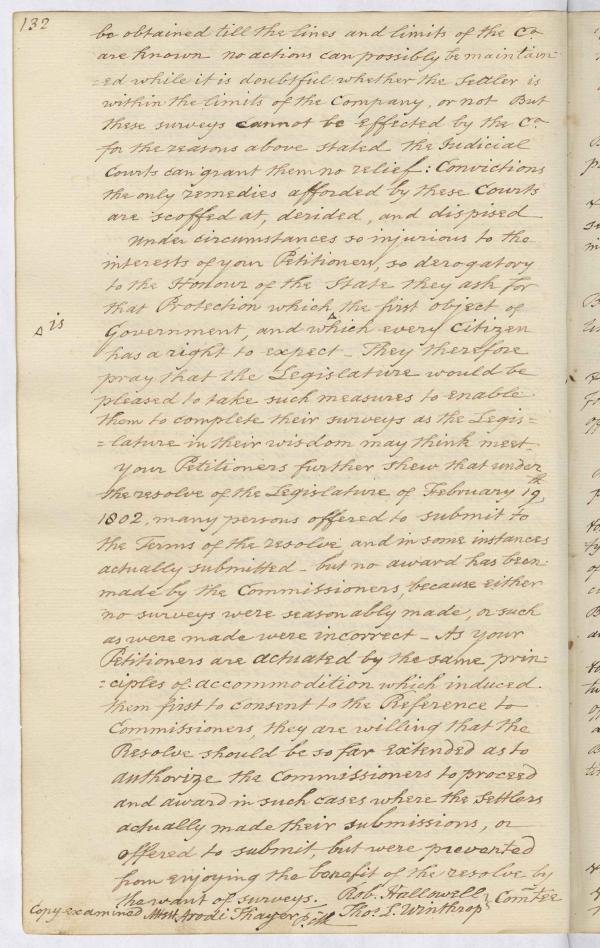 132
be obtained till the lines and limits of the Co
are known no actions can possibly be maintain
=ed while it is doubtful whether the Settler is
within the limits of the Company, or not But
these surveys cannot be effected by the Co
for the reasons above stated the Judicial
Courts can grant them no relief: Convictions
the only remedies afforded by these Courts
are scoffed at, derided, and dispised
Under circumstances so injurious to the
interests of your Petitioners, so derogatory
to the Honour of the State they ask for
that Protection which ^ the first object of
^ is
Government, and which every Citizen
has a right to expect - They therefore
pray that the Legislature would be
pleased to take such measures to enable
them to complete their surveys as the Legis=
=lature in their wisdom may think meet -
Your Petitioners further shew that under
the resolve of the Legislature of February 19th,
1802, many persons offered to submit to
the Terms of the resolve, and in some instances
actually submitted - but no award has been
made by the Commissioners, because either
no surveys were seasonably made, or such
as were made were incorrect - As your
Petitioners are actuated by the same prin=
=ciples of accommodition which induced
them first to consent to the Reference to
Commissioners, they are willing that the
Resolve should be so far extended as to
authorize the Commissioners to proceed
and award in such cases where the Settlers
actually made their submissions, or
offered to submit, but were prevented
from enjoying the benefit of the resolve by
the want of surveys. Rob. Hallowell
Thos. L. Winthrop } Comtee
Copy examined Attest Arodi Thayer